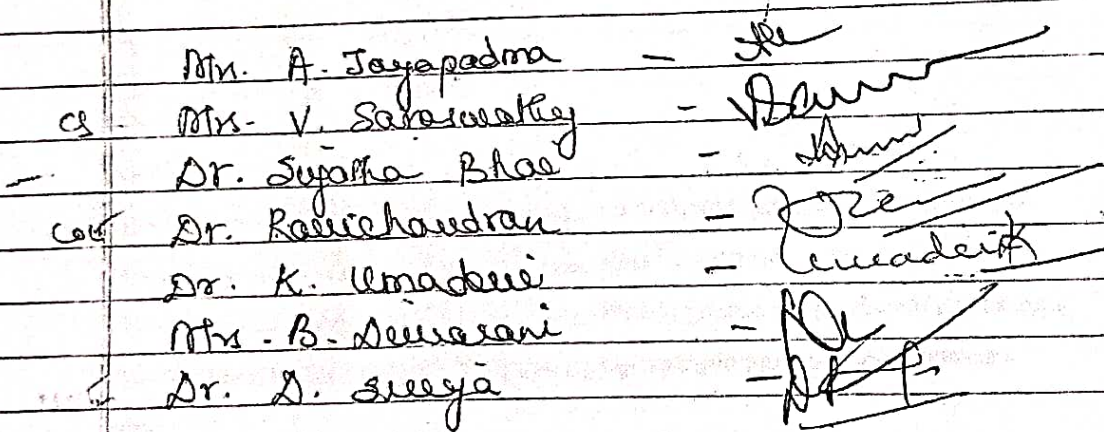 Mrs. A. Jayapadma -
cs. Mrs. V. Saraswathy -
- Dr. Sujatha Bhai -
Dr. Ravichandran -
Dr. K. Umadevi - Umadevi K
Mrs. B. Devarani -
Dr. D. Surya -